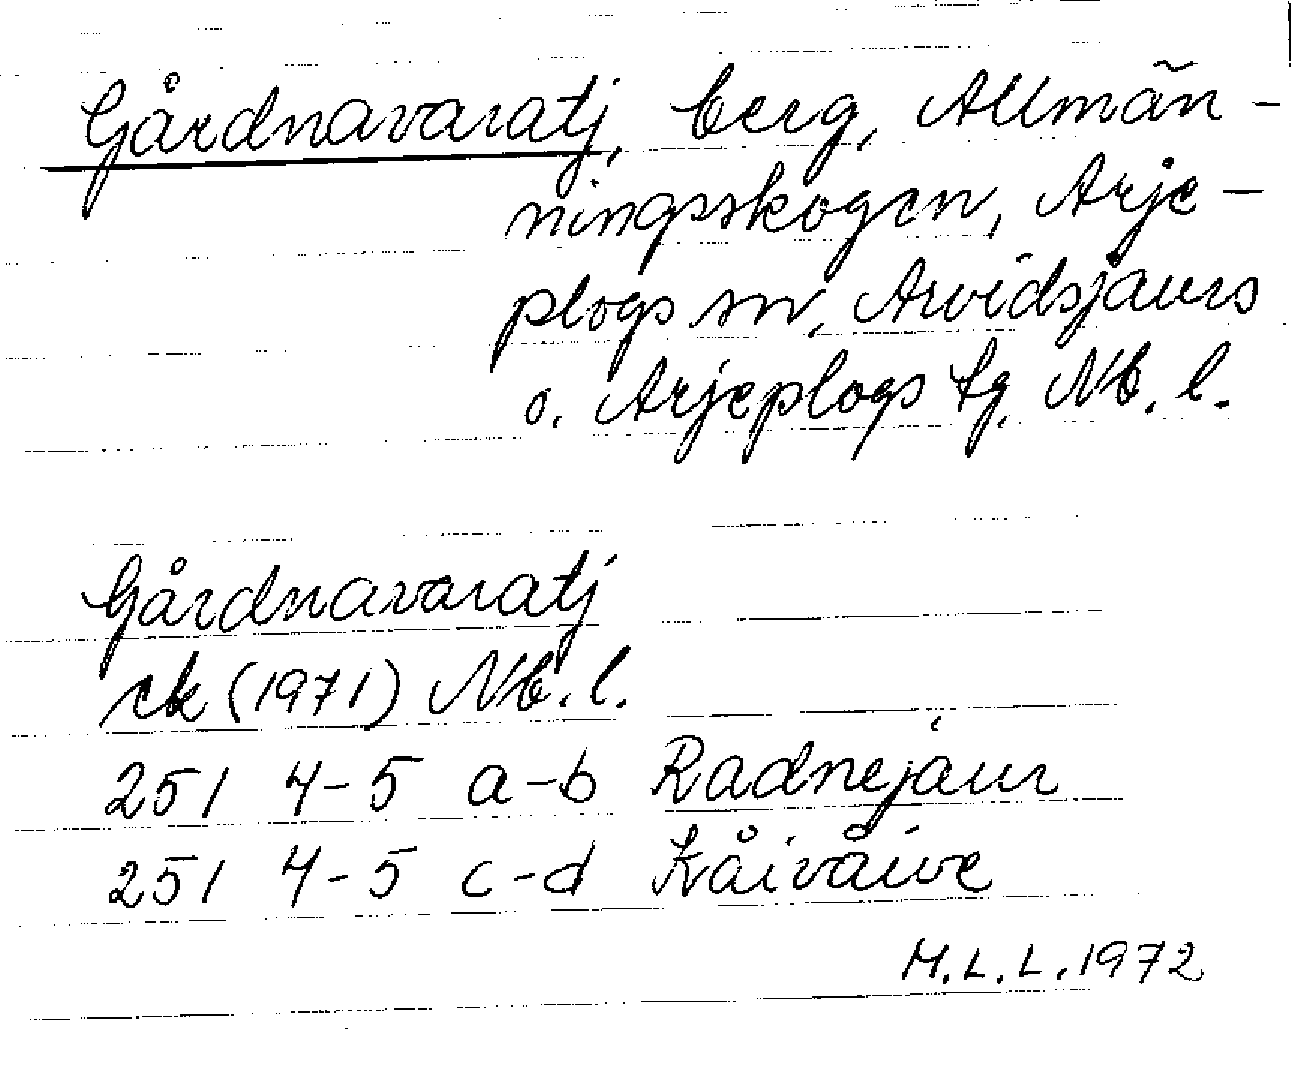 Gårdnavaratj, berg, Allmän-
ningsskogen, Arje-
plogs sn, Arvidsjaurs
o. Arjeplogs tg, Nb. l.
Gårdnavaratj
rk (1971) Nb. l.
251 4-5 a-b Radnejaur
251 4-5 c-d Kåivåive
M.L.L. 1972